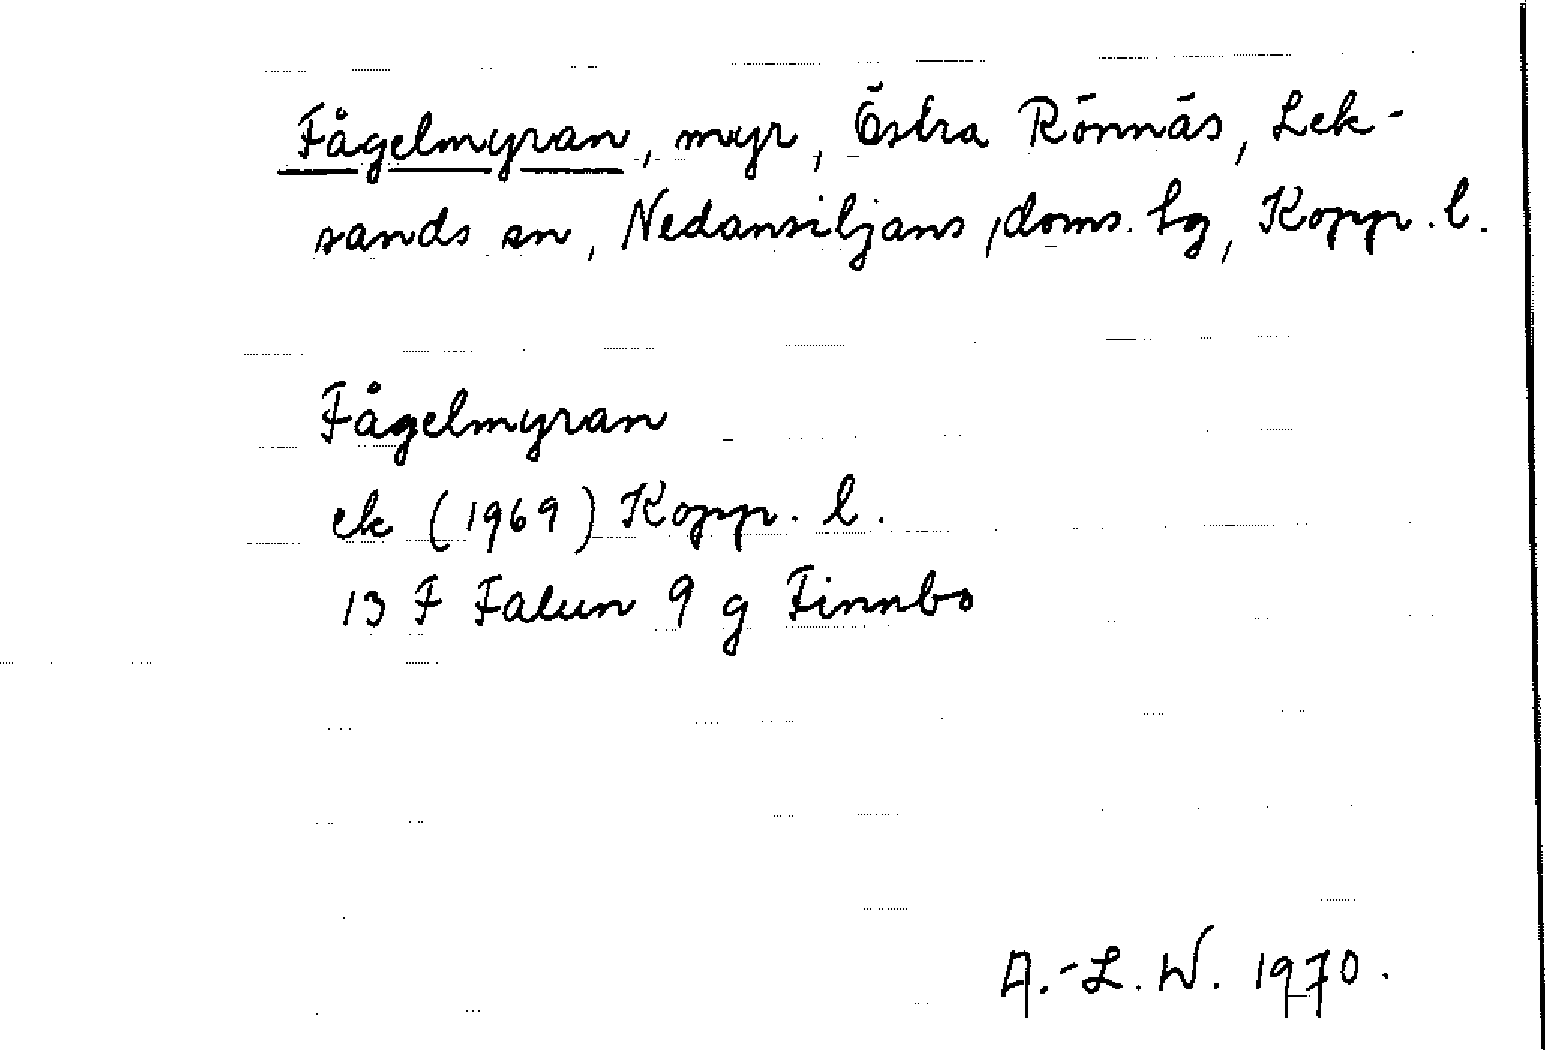 Fågelmyran, myr, Östra Rönnäs, Lek-
sands sn, Nedansiljans doms. hg, Kopp. l.
Fågelmyran
ek (1969) Kopp. l.
13 F Falun 9 g Finnbo
A.-L. W. 1970.